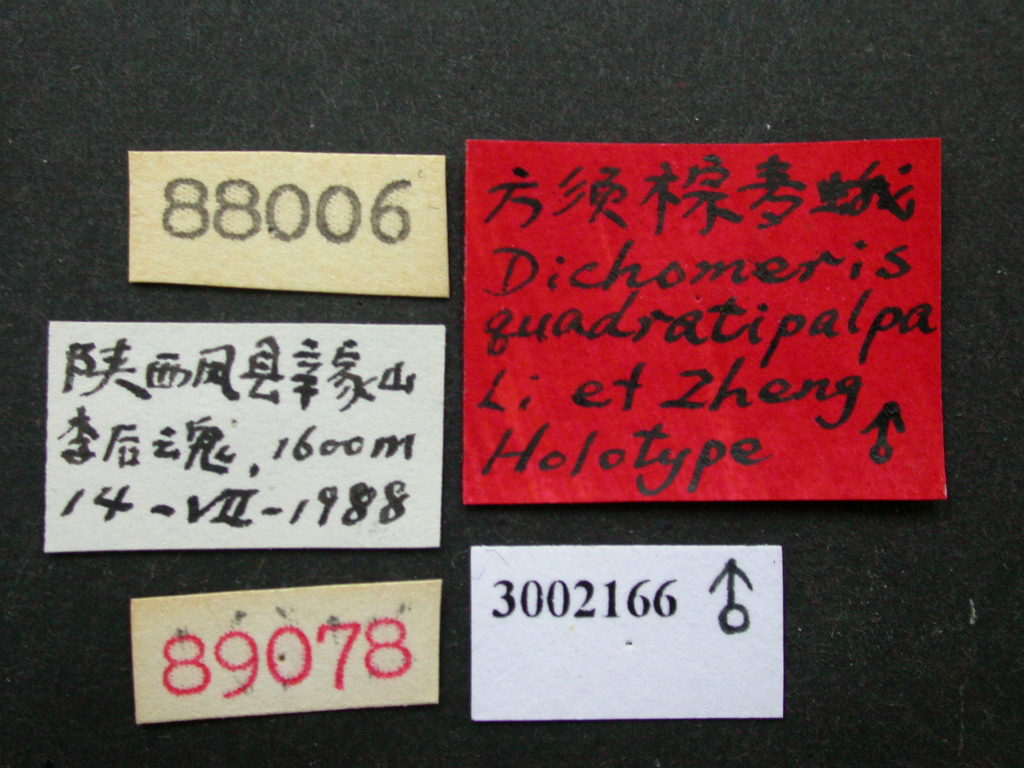 88006
陕西凤县辛家山
李后魂, 1600m
14-VII-1988
89078
方须棕麦蛾
Dichomeris
quadratipalpa
Li et Zheng
Holotype ♂
3002166 ♂